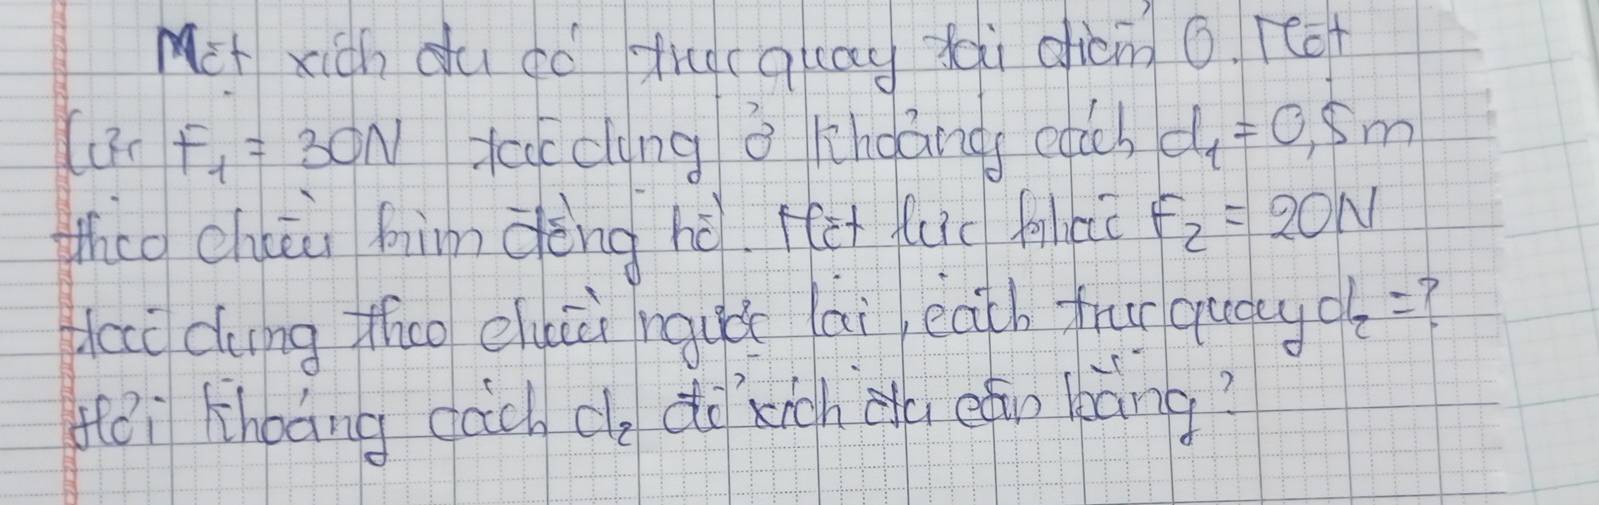 Một xích đu có trục quay tại điểm O. Một
lực F₁ = 30N tác dụng ở khoảng cách d₁ = 0,5m
theo chiều kim đồng hồ. Một lực khác F₂ = 20N
tác dụng theo chiều ngược lại, cách trục quay d₂ = ?
Hỏi khoảng cách d₂ để xích đu cân bằng?